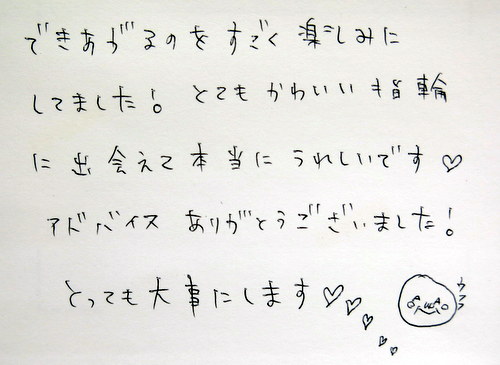 できあがるのをすごく楽しみに
してました! とてもかわいい指輪
に出会えて本当にうれしいです♡
アドバイス ありがとうございました!
とっても大事にします♡♡♡♡♡